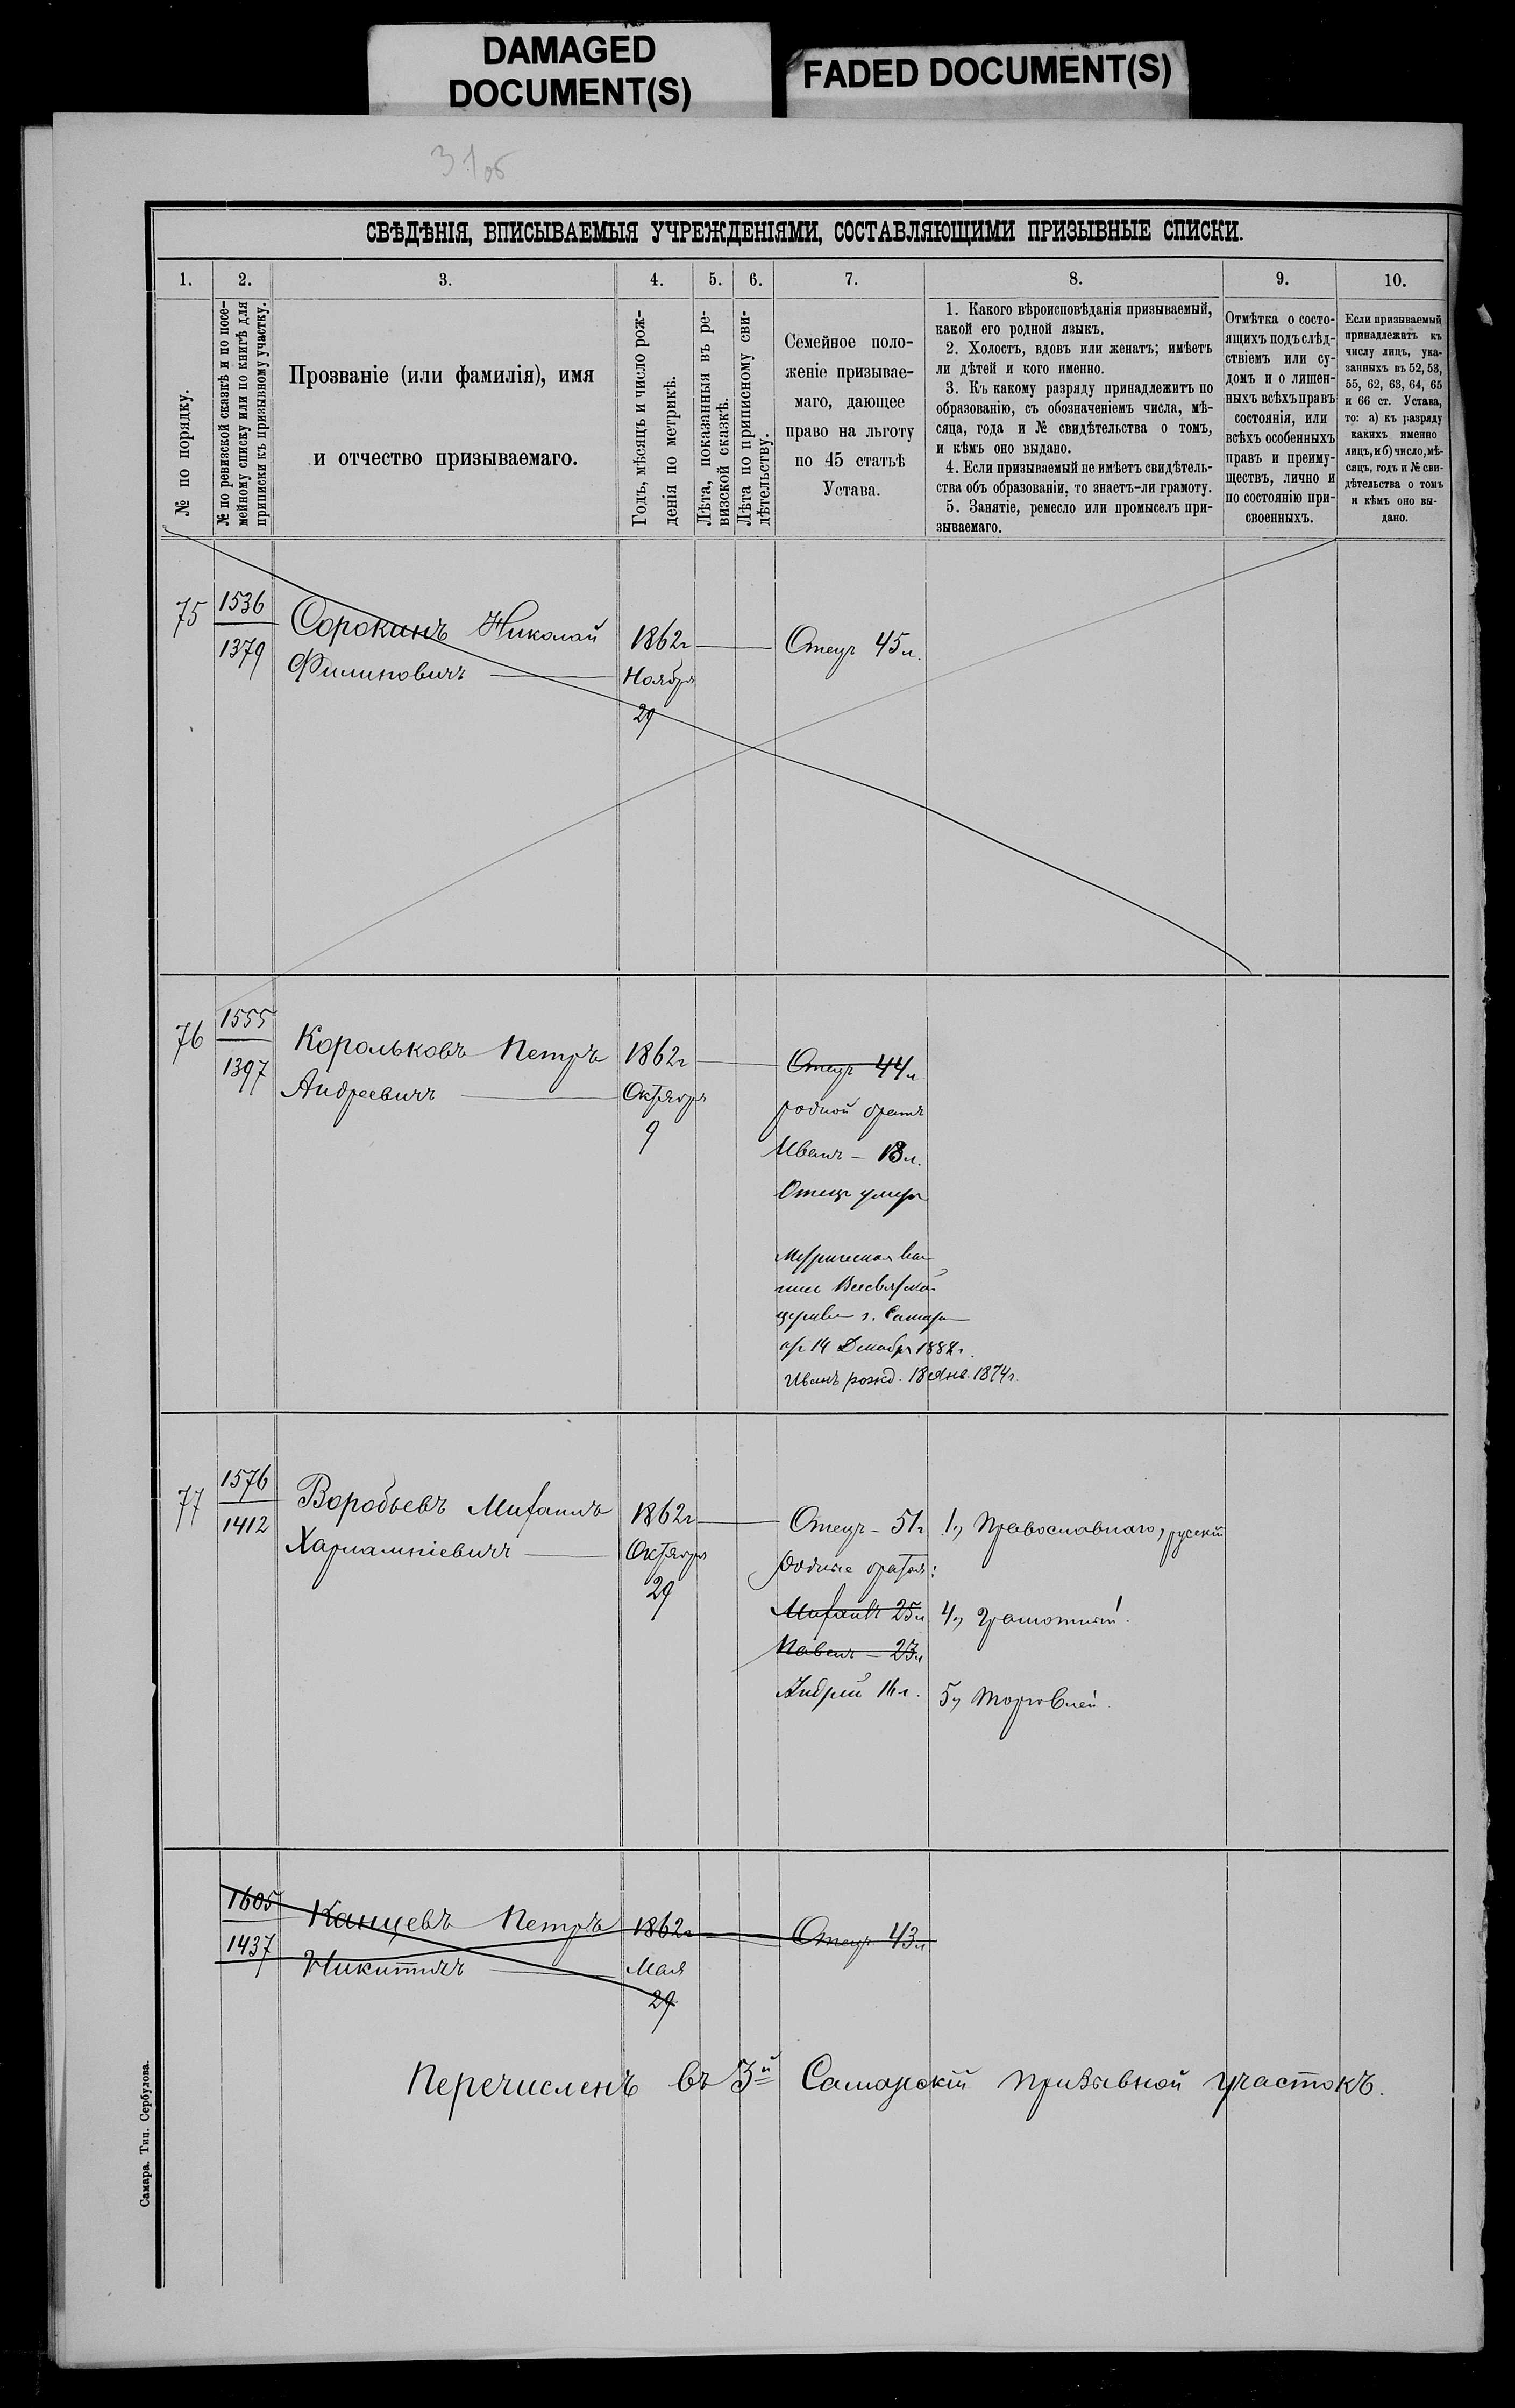 DAMAGED
DOCUMENT(S)
FADED DOCUMENT(S)
31об
СВѢДѢНІЯ, ВПИСЫВАЕМЫЯ УЧРЕЖДЕНІЯМИ, СОСТАВЛЯЮЩИМИ ПРИЗЫВНЫЕ СПИСКИ.
1.
2.
3.
4.
5.
6.
7.
8.
9.
10.
№ по порядку.
№ по ревизской сказкѣ и по посе-
мейному списку или по книгѣ для
приписки къ призывному участку.
Прозваніе (или фамилія), имя
и отчество призываемаго.
Годъ, мѣсяцъ и число рож-
денія по метрикѣ.
Лѣта, показанныя въ ре-
визской сказкѣ.
Лѣта по приписному сви-
дѣтельству.
Семейное поло-
женіе призывае-
маго, дающее
право на льготу
по 45 статьѣ
Устава.
1. Какого вѣроисповѣданія призываемый,
какой его родной языкъ.
2. Холостъ, вдовъ или женатъ; имѣетъ
ли дѣтей и кого именно.
3. Къ какому разряду принадлежитъ по
образованію, съ обозначеніемъ числа, мѣ-
сяца, года и № свидѣтельства о томъ,
и кѣмъ оно выдано.
4. Если призываемый не имѣетъ свидѣтель-
ства объ образованіи, то знаетъ-ли грамоту.
5. Занятіе, ремесло или промыселъ при-
зываемаго.
Отмѣтка о состо-
ящихъ подъ слѣд-
ствіемъ или су-
домъ и о лишен-
ныхъ всѣхъ правъ
состоянія, или
всѣхъ особенныхъ
правъ и преиму-
ществъ, лично и
по состоянію при-
своенныхъ.
Если призываемый
принадлежитъ къ
числу лицъ, ука-
занныхъ въ 52, 53,
55, 62, 63, 64, 65
и 66 ст. Устава,
то: а) къ разряду
какихъ именно
лицъ, и б) число, мѣ-
сяцъ, годъ и № сви-
дѣтельства о томъ
и кѣмъ оно вы-
дано.
75
1536
1379
Сорокинъ Николай
Филиповичъ
1862г
Ноября
29
Отецъ 45 л.
76
1555
1397
Корольковъ Петръ
Андреевичъ
1862г
Октября
9
Отецъ 44 л
родной братъ
Иванъ – 13 л.
Отецъ умеръ
церкви г. Самары
14 Декабря 1882 г.
Иванъ рожд. 18 Янв. 1874 г.
77
1576
1412
Воробьевъ Михаилъ
Харлампіевичъ
1862г
Октября
29
Отецъ – 51 г
родные братья:
Михаилъ 25 л
Павелъ – 23 л
Андрей 16 л.
1., Православнаго, русскій
4., Грамотный.
5., Торговлей.
1605
1437
Канцевъ Петръ
Никитичъ
1862г
Мая
29
Отецъ 43 л
Перечисленъ въ 3й Самарскій призывной участокъ.
Самара. Тип. Сербулова.